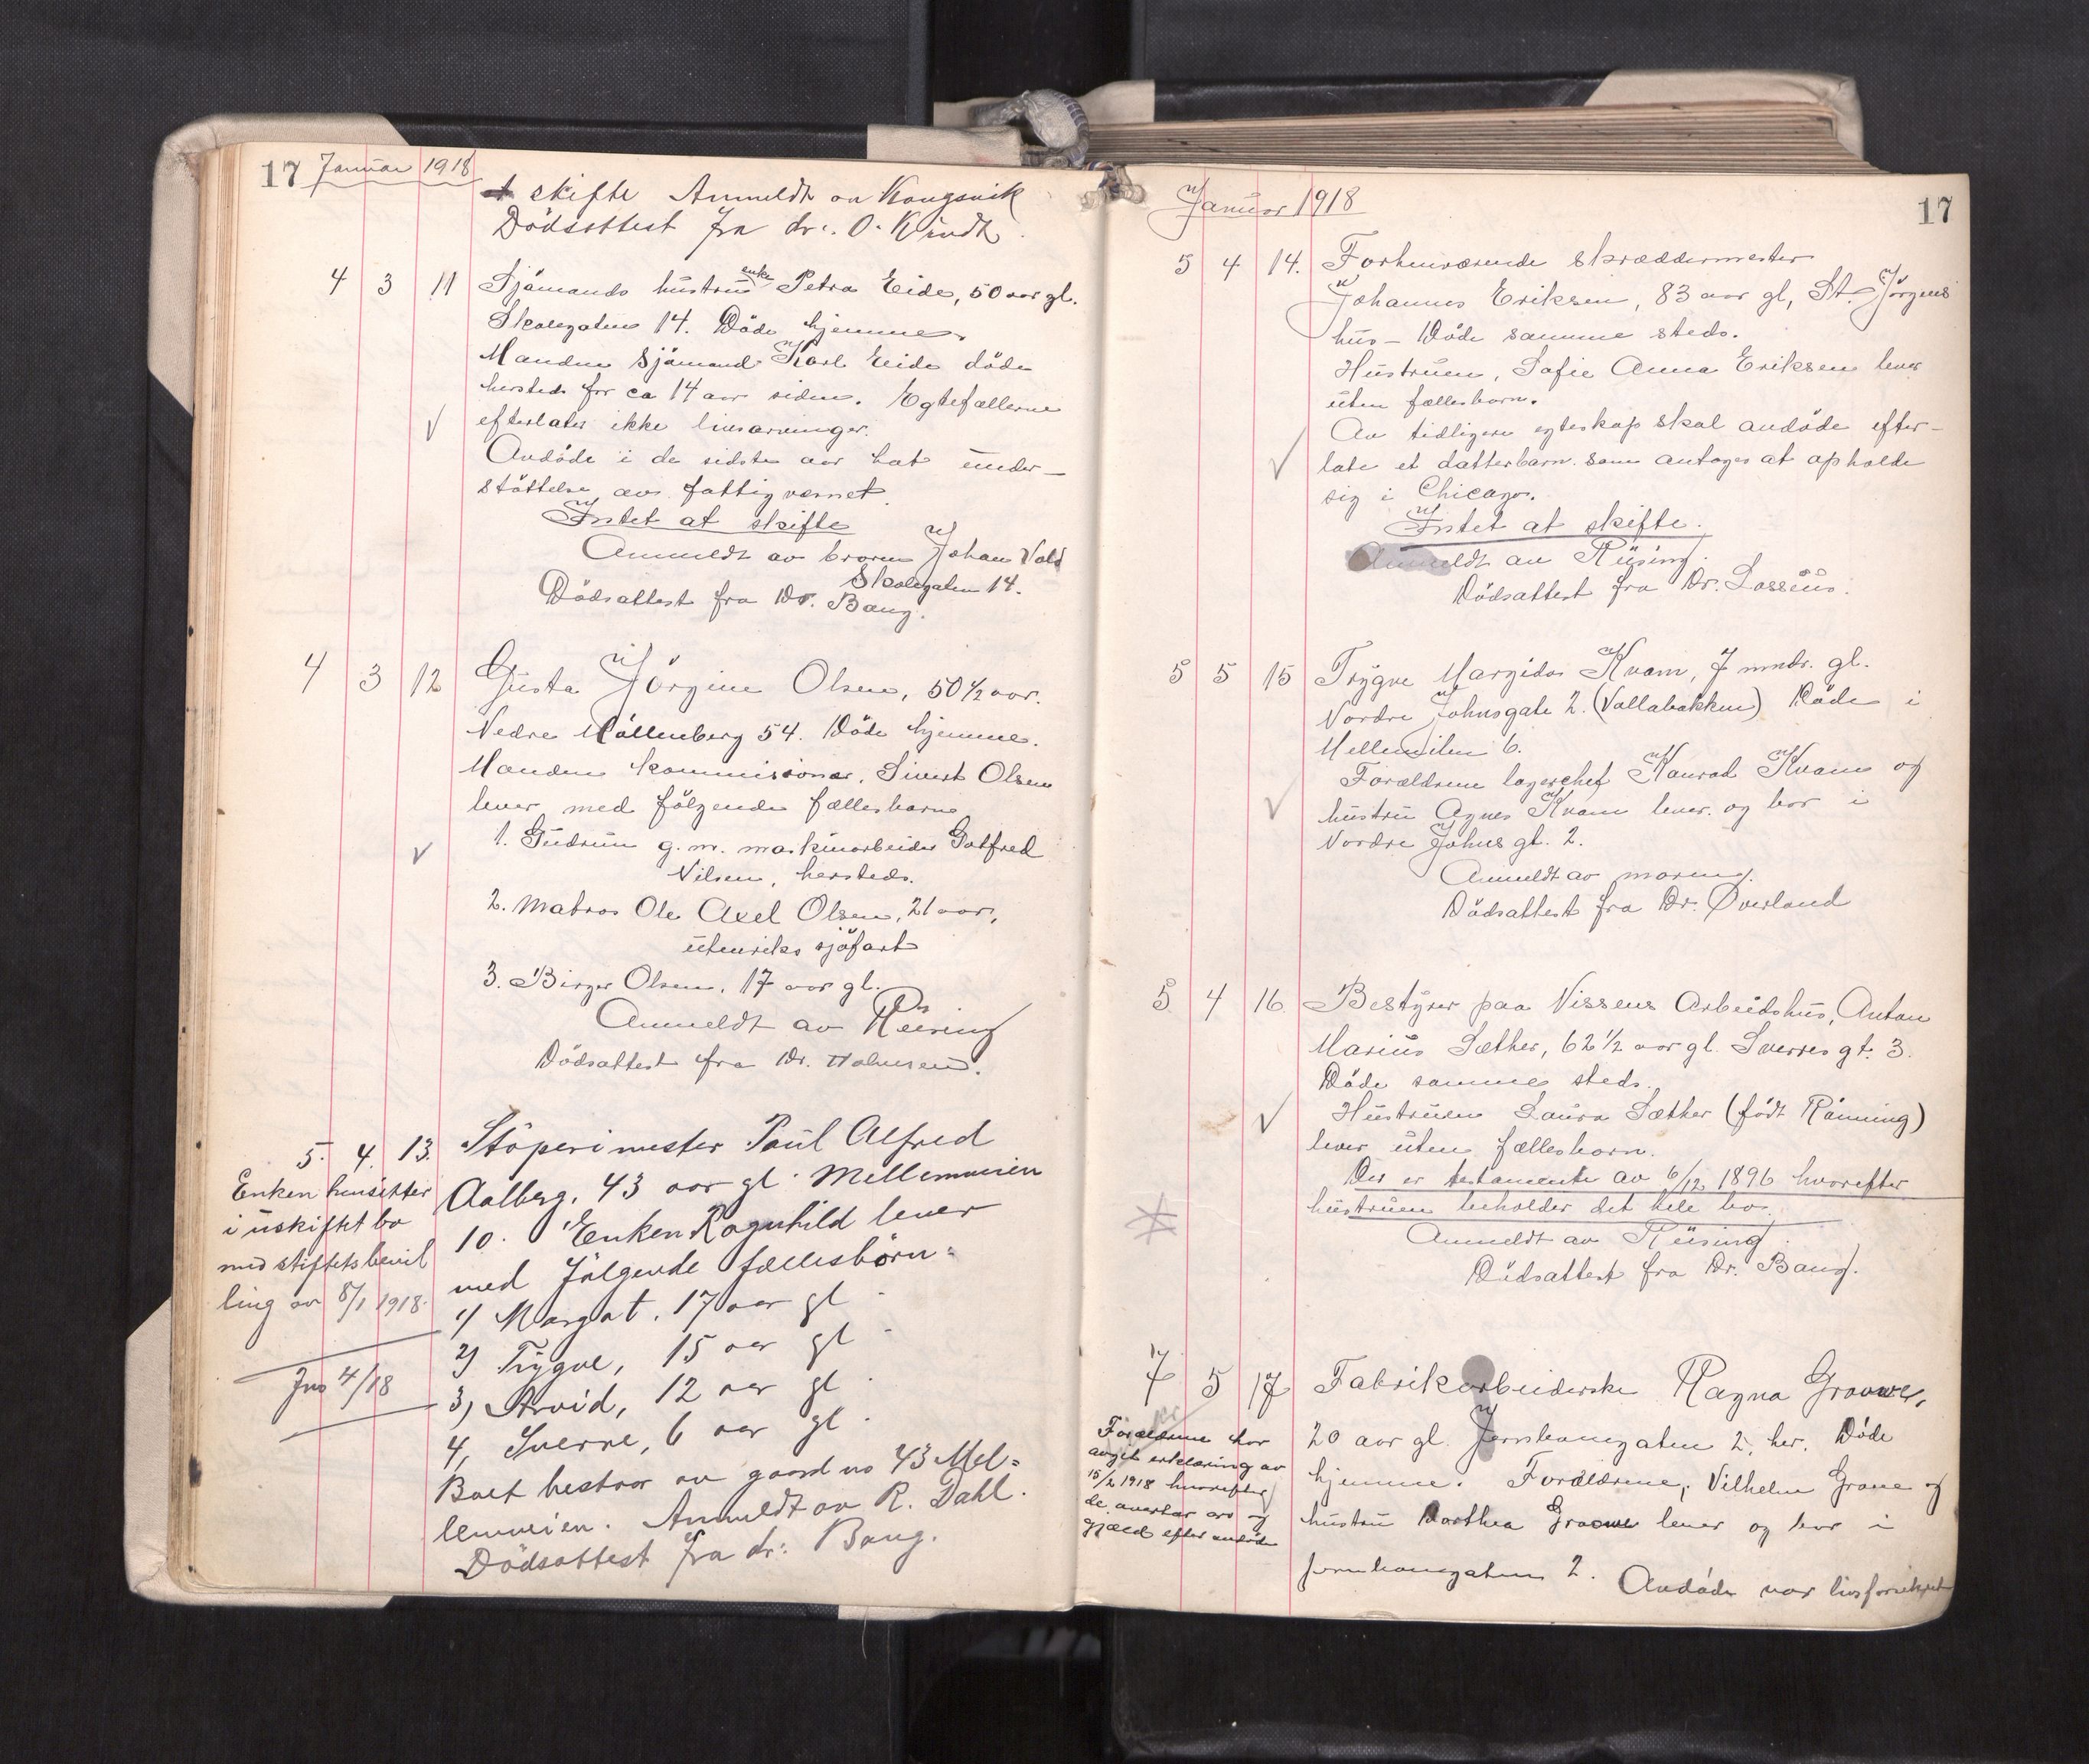 17 Januar 1918
at skifte Anmeldt av Kongsvik
Dödsattest fra dr. O. Kindt.
4 3 11 Sjömands hustru enke Petra Eide, 50 aar gl.
Skolegaten 14. Döde hjemme.
Manden Sjömand Karl Eide döde
hersteds for ca 14 aar siden. Egtefællerne
efterlater ikke livsarvinger.
Avdöde i de sidste aar hat under-
stöttelse av fattigvæsnet.
Intet at skifte
Anmeldt av broren Johan Vold
Skolegaten 14.
Dödsattest fra Dr. Bang.
4 3 12 Gusta Jörgine Olsen, 50 1/2 aar.
Nedre Möllenberg 54. Döde hjemme.
Manden kommissionær, Sivert Olsen
lever med fölgende fællesbarn
1. Gudrun g. m. maskinarbeider Gotfred
Nilsen, hersteds.
2. Matros Ole Axel Olsen, 21 aar,
utenriks sjöfart
3. Birger Olsen, 17 aar gl.
Anmeldt av Rüsing
Dödsattest fra Dr. Holmsen.
5. 4. 13. Stöperimester Paul Alfred
Aalberg, 43 aar gl. Mellemveien
10. Enken Ragnhild lever
med fölgende fællesbörn:
1) Margot, 17 aar gl.
2) Trygve, 15 aar gl.
3) Arvid, 12 aar gl.
4, Sverre, 6 aar gl.
Boet bestaar av gaard no 43 Mel=
lemveien. Anmeldt av R. Dahl.
Dödsattest fra dr. Bang.
Enken hensitter
i uskiftet bo
med stiftets bevil
ling av 8/1 1918.
Jno 4/18
Januar 1918
17
5 4 14. Forhenværende Skræddermester
Johannes Eriksen, 83 aar gl, St. Jörgens
hus - Döde samme steds.
Hustruen, Sofie Anna Eriksen lever
uten fællesbarn.
Av tidligere egteskap skal avdöde efter-
late et datterbarn som antages at opholde
sig i Chicago.
Intet at skifte.
Anmeldt av Rüsing.
Dödsattest fra Dr. Lossius.
5 5 15 Trygve Margido Kvam, 7 mndr. gl.
Nordre Johnsgate 2. (Vollabakken) Döde i
Mellemilen 6.
Forældrene lagerchef Konrad Kvam og
hustru Agnes Kvam lever og bor i
Nordre Johns gt. 2.
Anmeldt av moren.
Dödsattest fra Dr. Øverland
5 4 16 Bestyrer paa Nissens Arbeidshus, Anton
Marius Sæther, 62 1/2 aar gl. Sverres gt. 3.
Döde samme steds.
Hustruen Laura Sæther (födt Rönning)
lever uten fællesbarn.
Der er testamente av 6/12 1896 hvorefter
hustruen beholder det hele bo.
Anmeldt av Rüsing.
Dödsattest fra Dr. Bang.
7 5 17 Fabrikarbeiderske Ragna Graawe,
20 aar gl. Jernbanegaten 2, her. Döde
hjemme. Forældrene, Vilhelm Grave og
hustru Dorthea Graawe lever og bor i
Jernbanegaten 2. Avdöde var livsforsikret
Forældrene har
avgit erklæring av
15/2 1918 hvorefter
de overtar arv og
gjæld efter avdöde